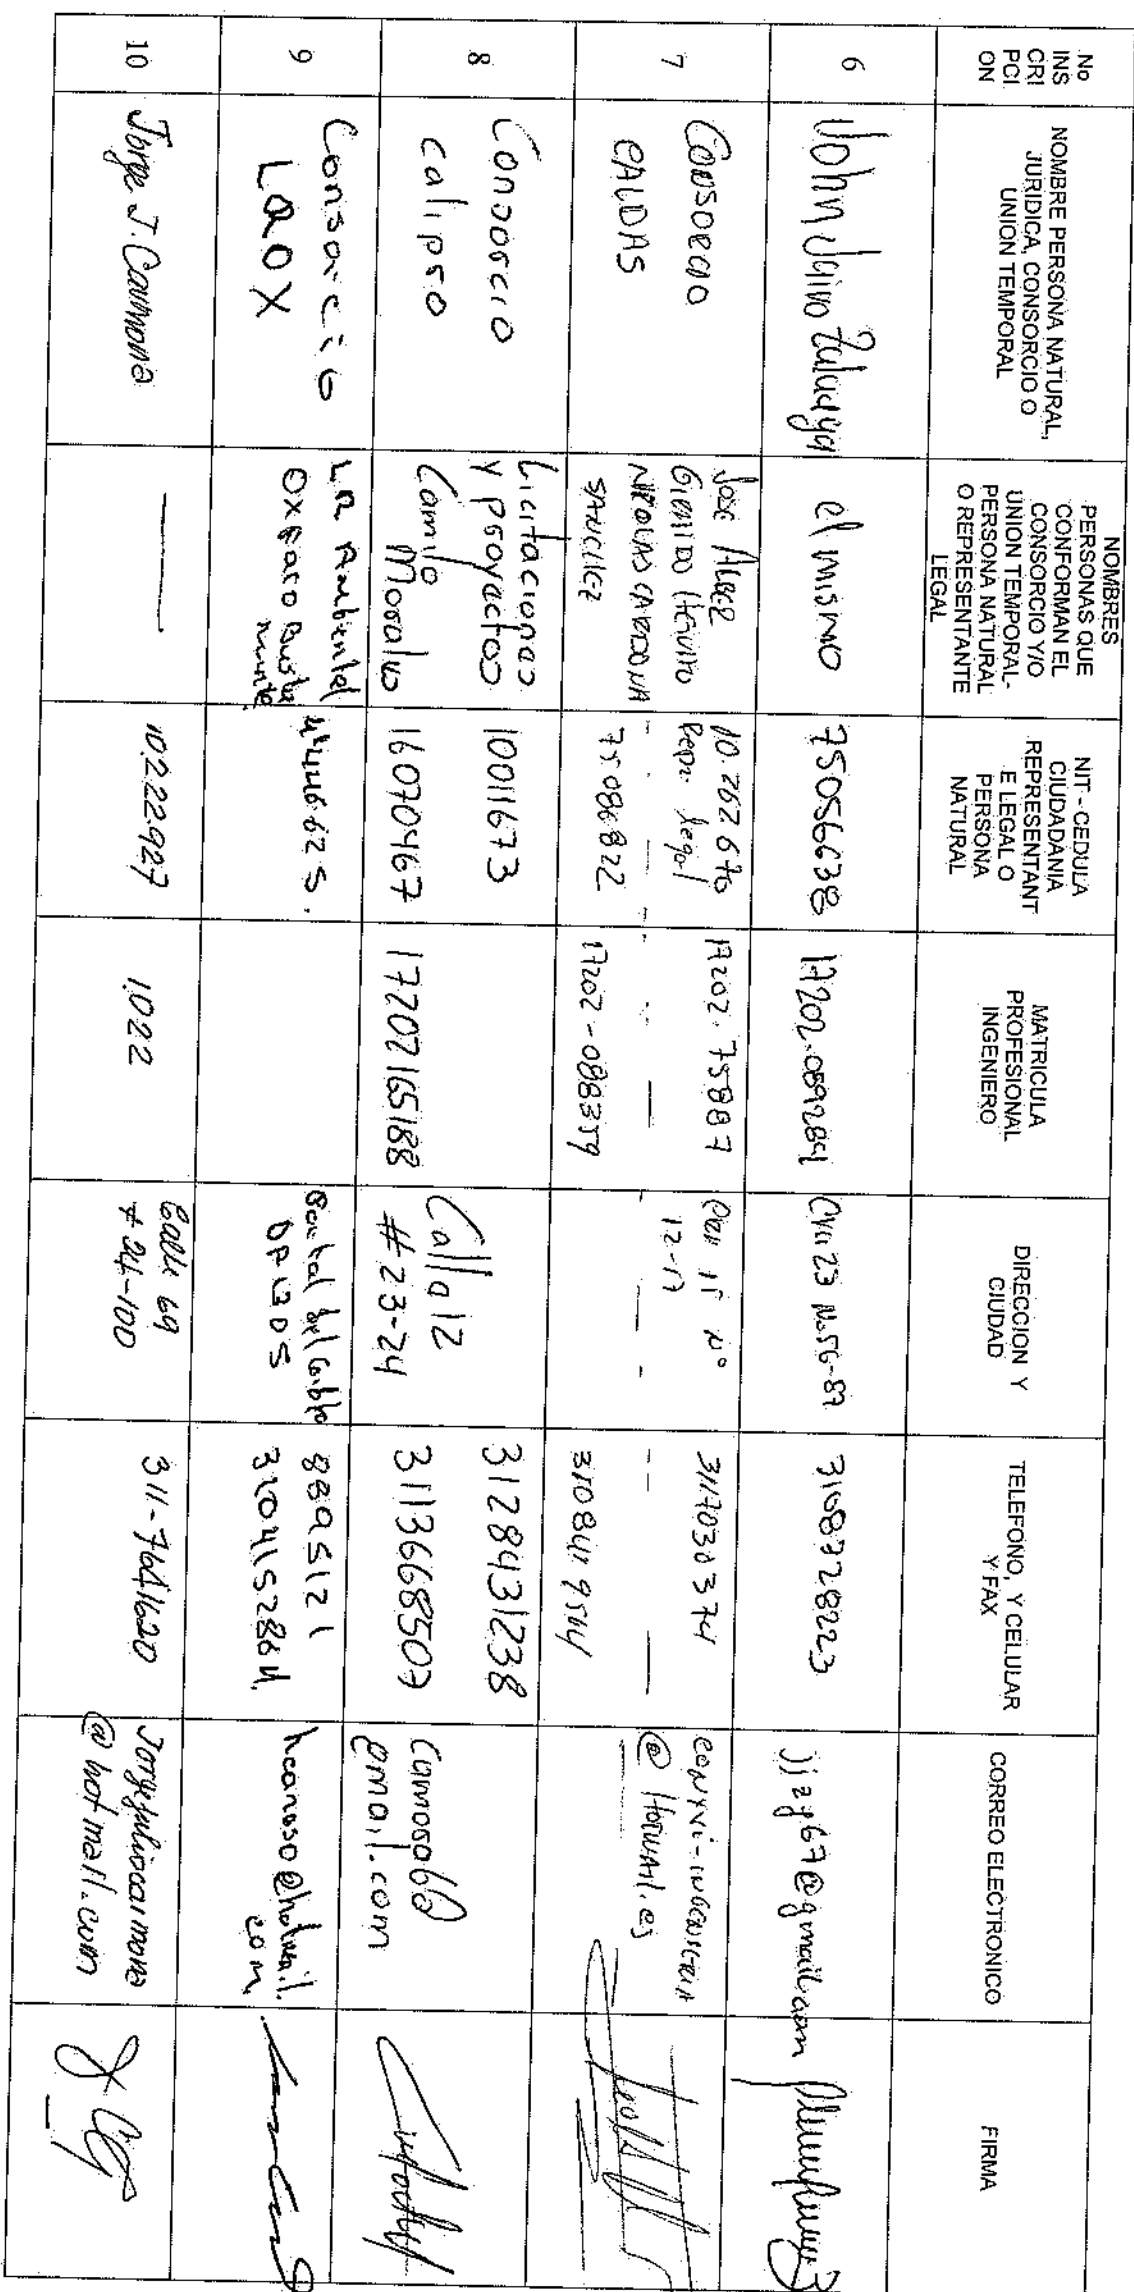 No
INS
CRI
PCI
ON
NOMBRE PERSONA NATURAL,
JURIDICA, CONSORCIO O
UNION TEMPORAL
NOMBRES
PERSONAS QUE
CONFORMAN EL
CONSORCIO Y/O
UNION TEMPORAL-
PERSONA NATURAL
O REPRESENTANTE
LEGAL
NIT - CEDULA
CIUDADANIA
REPRESENTANT
E LEGAL O
PERSONA
NATURAL
MATRICULA
PROFESIONAL
INGENIERO
DIRECCION Y
CIUDAD
TELEFONO, Y CELULAR
Y FAX
CORREO ELECTRONICO
FIRMA
6
John Jairo Zuluaga
el mismo
75056638
17202.059289
Cra 23 No 56-87
3108328223
jjzg67@gmail.com
7
CONSORCIO
CALDAS
Jose
NICOLAS CARDONA
SANCHEZ
10.262.670
Repr. legal
75.086822
17202-75887
17202-088359
Nº
12-17
3117030374
310841 9514
@ Hotmail.es
8
Consorcio
calipso
Licitaciones
y proyectos
Camilo
Morales
10011673
16070467
17202165188
Calle 12
# 23-24
3128431238
3113668507
gmail.com
9
Consorcio
LQOX
LQ Ambiental
8895121
3104152864
hcanoso@hotmail.
com
10
Jorge J. Carmona
10.222927
1022
Calle 69
# 24-100
311-7641620
Jorgejuliocarmona
@hotmail.com